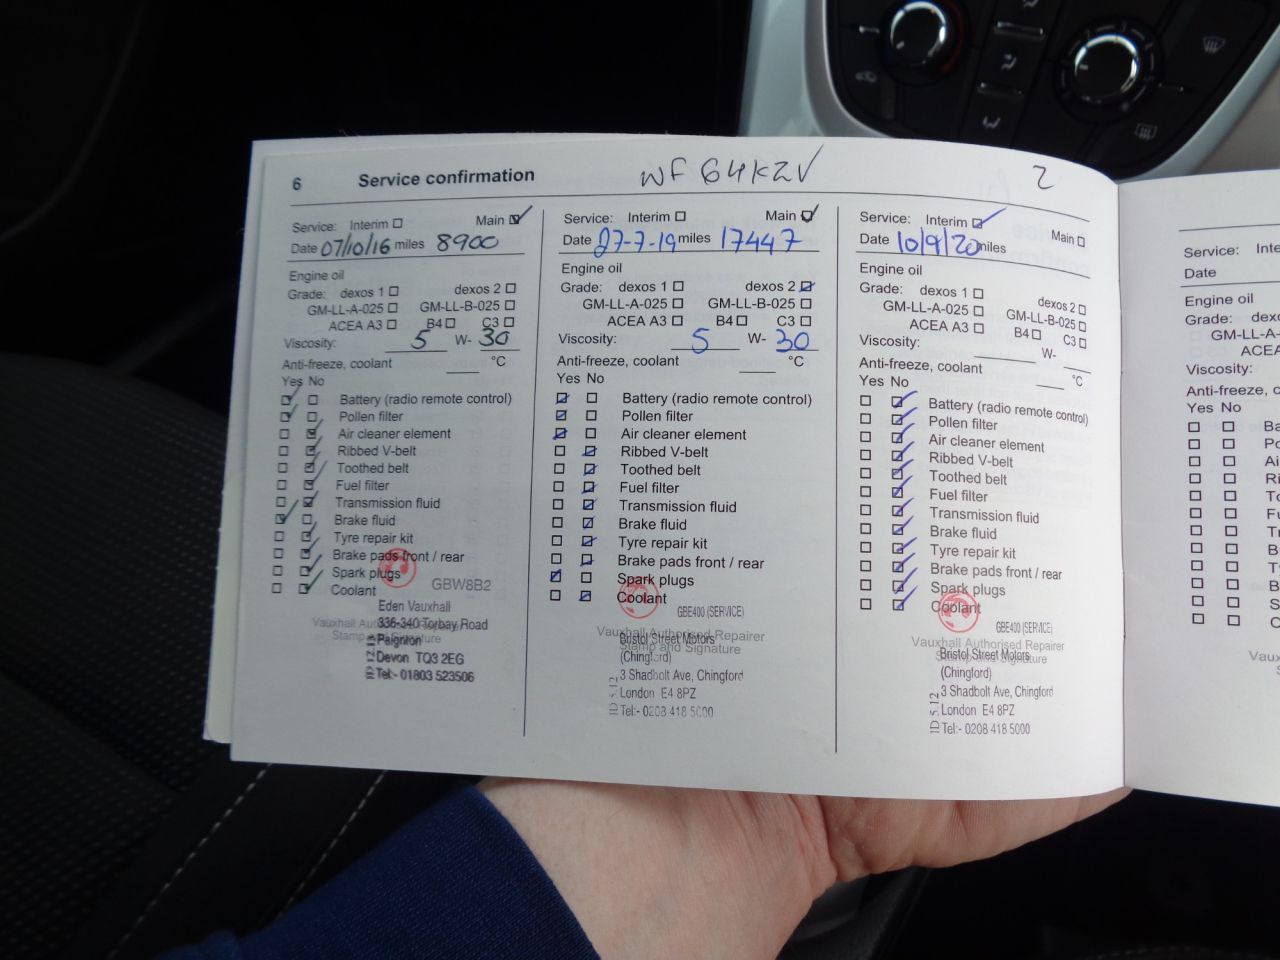 6 Service confirmation WF64KZV 2
Service: Interim Main
Date 07/10/16 miles 8900
Engine oil
Grade: dexos 1 dexos 2
GM-LL-A-025 GM-LL-B-025
ACEA A3 B4 C3
Viscosity: 5 W- 30
Anti-freeze, coolant °C
Yes No
Battery (radio remote control)
Pollen filter
Air cleaner element
Ribbed V-belt
Toothed belt
Fuel filter
Transmission fluid
Brake fluid
Tyre repair kit
Brake pads front / rear
Spark plugs
Coolant
GBW8B2
Eden Vauxhall
336-340 Torbay Road
Paignton
Devon TQ3 2EG
Tel:- 01803 523506
Vauxhall Authorised Repairer
Stamp and Signature
Service: Interim Main
Date 27-7-19 miles 17447
Engine oil
Grade: dexos 1 dexos 2
GM-LL-A-025 GM-LL-B-025
ACEA A3 B4 C3
Viscosity: 5 W- 30
Anti-freeze, coolant °C
Yes No
Battery (radio remote control)
Pollen filter
Air cleaner element
Ribbed V-belt
Toothed belt
Fuel filter
Transmission fluid
Brake fluid
Tyre repair kit
Brake pads front / rear
Spark plugs
Coolant
GBE400 (SERVICE)
Vauxhall Authorised Repairer
Stamp and Signature
Bristol Street Motors
(Chingford)
3 Shadbolt Ave, Chingford
London E4 8PZ
Tel:- 0208 418 5000
Service: Interim Main
Date 10/9/20 miles
Engine oil
Grade: dexos 1 dexos 2
GM-LL-A-025 GM-LL-B-025
ACEA A3 B4 C3
Viscosity: W-
Anti-freeze, coolant °C
Yes No
Battery (radio remote control)
Pollen filter
Air cleaner element
Ribbed V-belt
Toothed belt
Fuel filter
Transmission fluid
Brake fluid
Tyre repair kit
Brake pads front / rear
Spark plugs
Coolant
GBE400 (SERVICE)
Vauxhall Authorised Repairer
Stamp and Signature
Bristol Street Motors
(Chingford)
3 Shadbolt Ave, Chingford
London E4 8PZ
Tel:- 0208 418 5000
Service: Inte
Date
Engine oil
Grade: dexo
GM-LL-A
ACEA
Viscosity:
Anti-freeze, c
Yes No
Ba
Po
Ai
Ri
To
Fu
Tr
B
Ty
B
S
C
Vaux